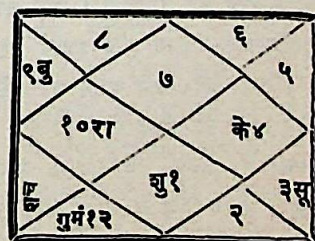 ८ ६
९बु ७ ५
१०रा के४
शु१ ३सू
गुमं१२ २